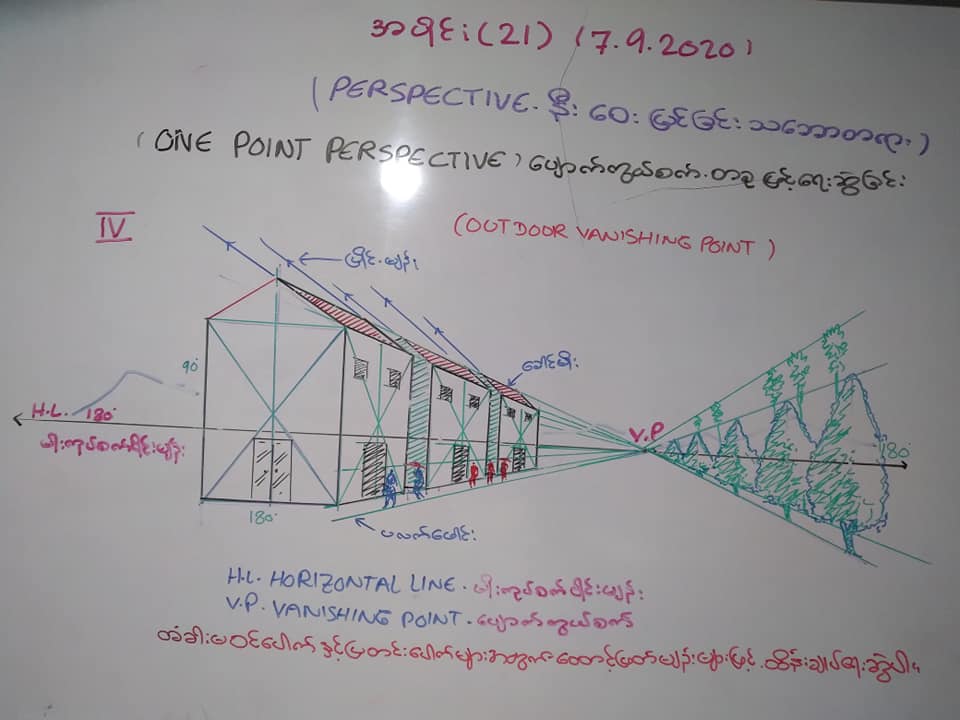 အပိုင်း(21) (7.9.2020)
(PERSPECTIVE. နီး ဝေး မြင်ခြင်း သဘောတရား)
(ONE POINT PERSPECTIVE) ပျောက်ကွယ်စက်. တခု ဖြင့်ရေးဆွဲခြင်း
IV
(OUTDOOR VANISHING POINT)
ပြိုင်.မျဉ်း
ခေါင်မိုး
90°
H.L. 180°
V.P
180°
မိုးကုပ်စက်ဝိုင်းမျဉ်း
180°
ပလက်ဖောင်း
H.L. HORIZONTAL LINE. မိုးကုပ်စက်ဝိုင်းမျဉ်း
V.P. VANISHING POINT. ပျောက်ကွယ်စက်
တံခါးမဝင်ပေါက် နှင့်ပြတင်းပေါက်များအတွက် ထောင့်ဖြတ်မျဉ်းများဖြင့်. ထိန်းချုပ်ရေးဆွဲပါ။